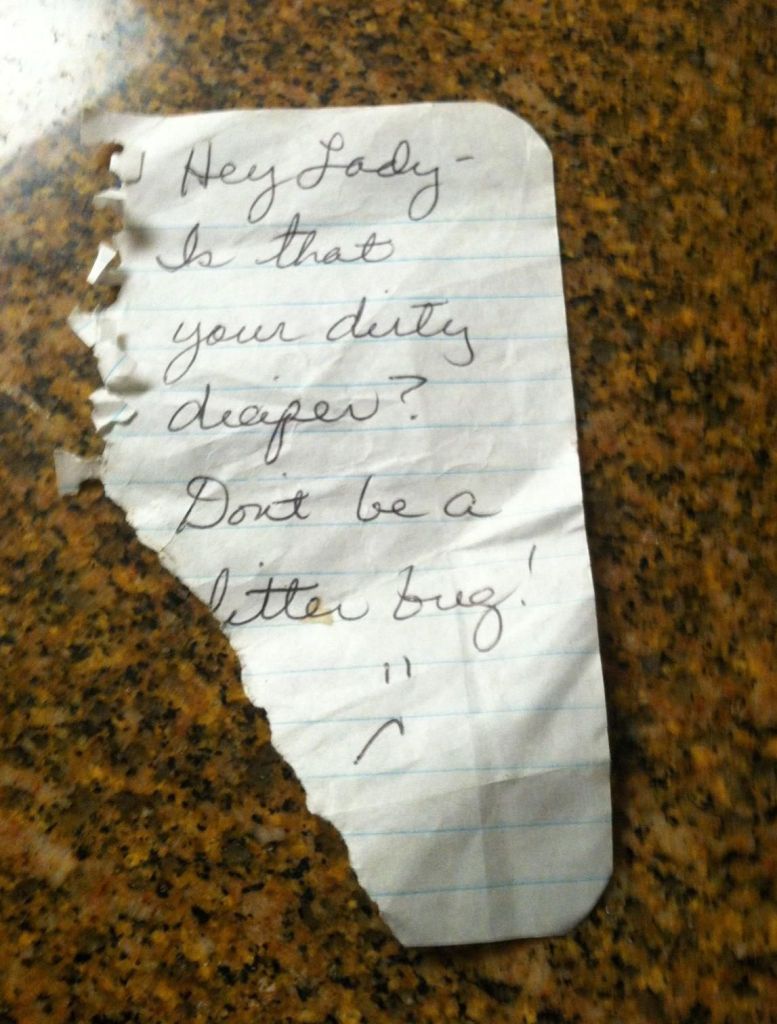 Hey Lady-
Is that
your dirty
diaper?
Don't be a
litter bug!